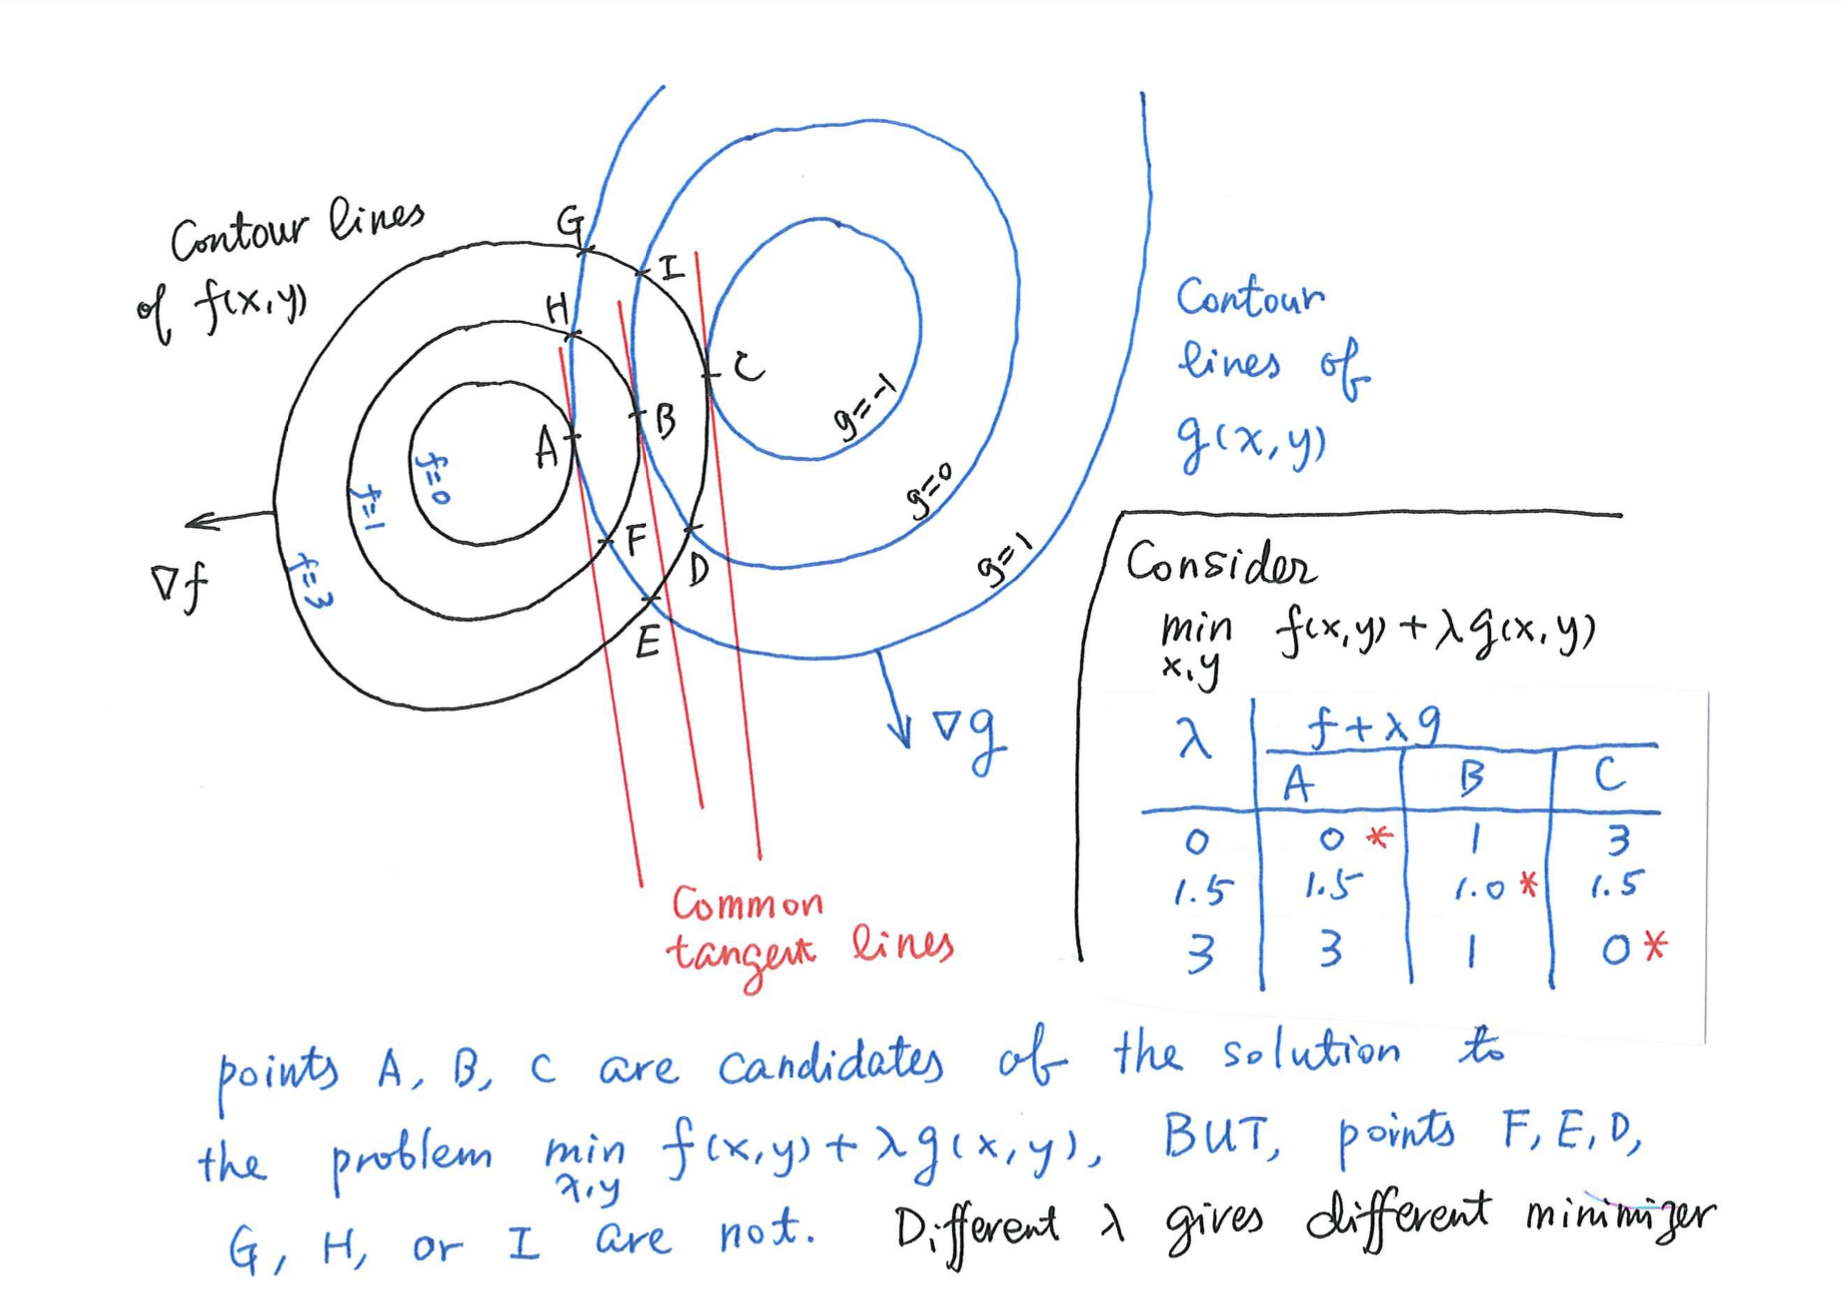 Contour lines
of f(x,y)
G
I
H
C
B
A
F
D
E
f=0
f=1
f=3
∇f
g=-1
g=0
g=1
∇g
Contour
lines of
g(x,y)
Common
tangent lines
Consider
min f(x,y) + λg(x,y)
x,y
λ f+λg
A B C
0 0 * 1 3
1.5 1.5 1.0 * 1.5
3 3 1 0 *
points A, B, C are candidates of the solution to
the problem min f(x,y) + λg(x,y), BUT, points F, E, D,
x,y
G, H, or I are not. Different λ gives different minimizer